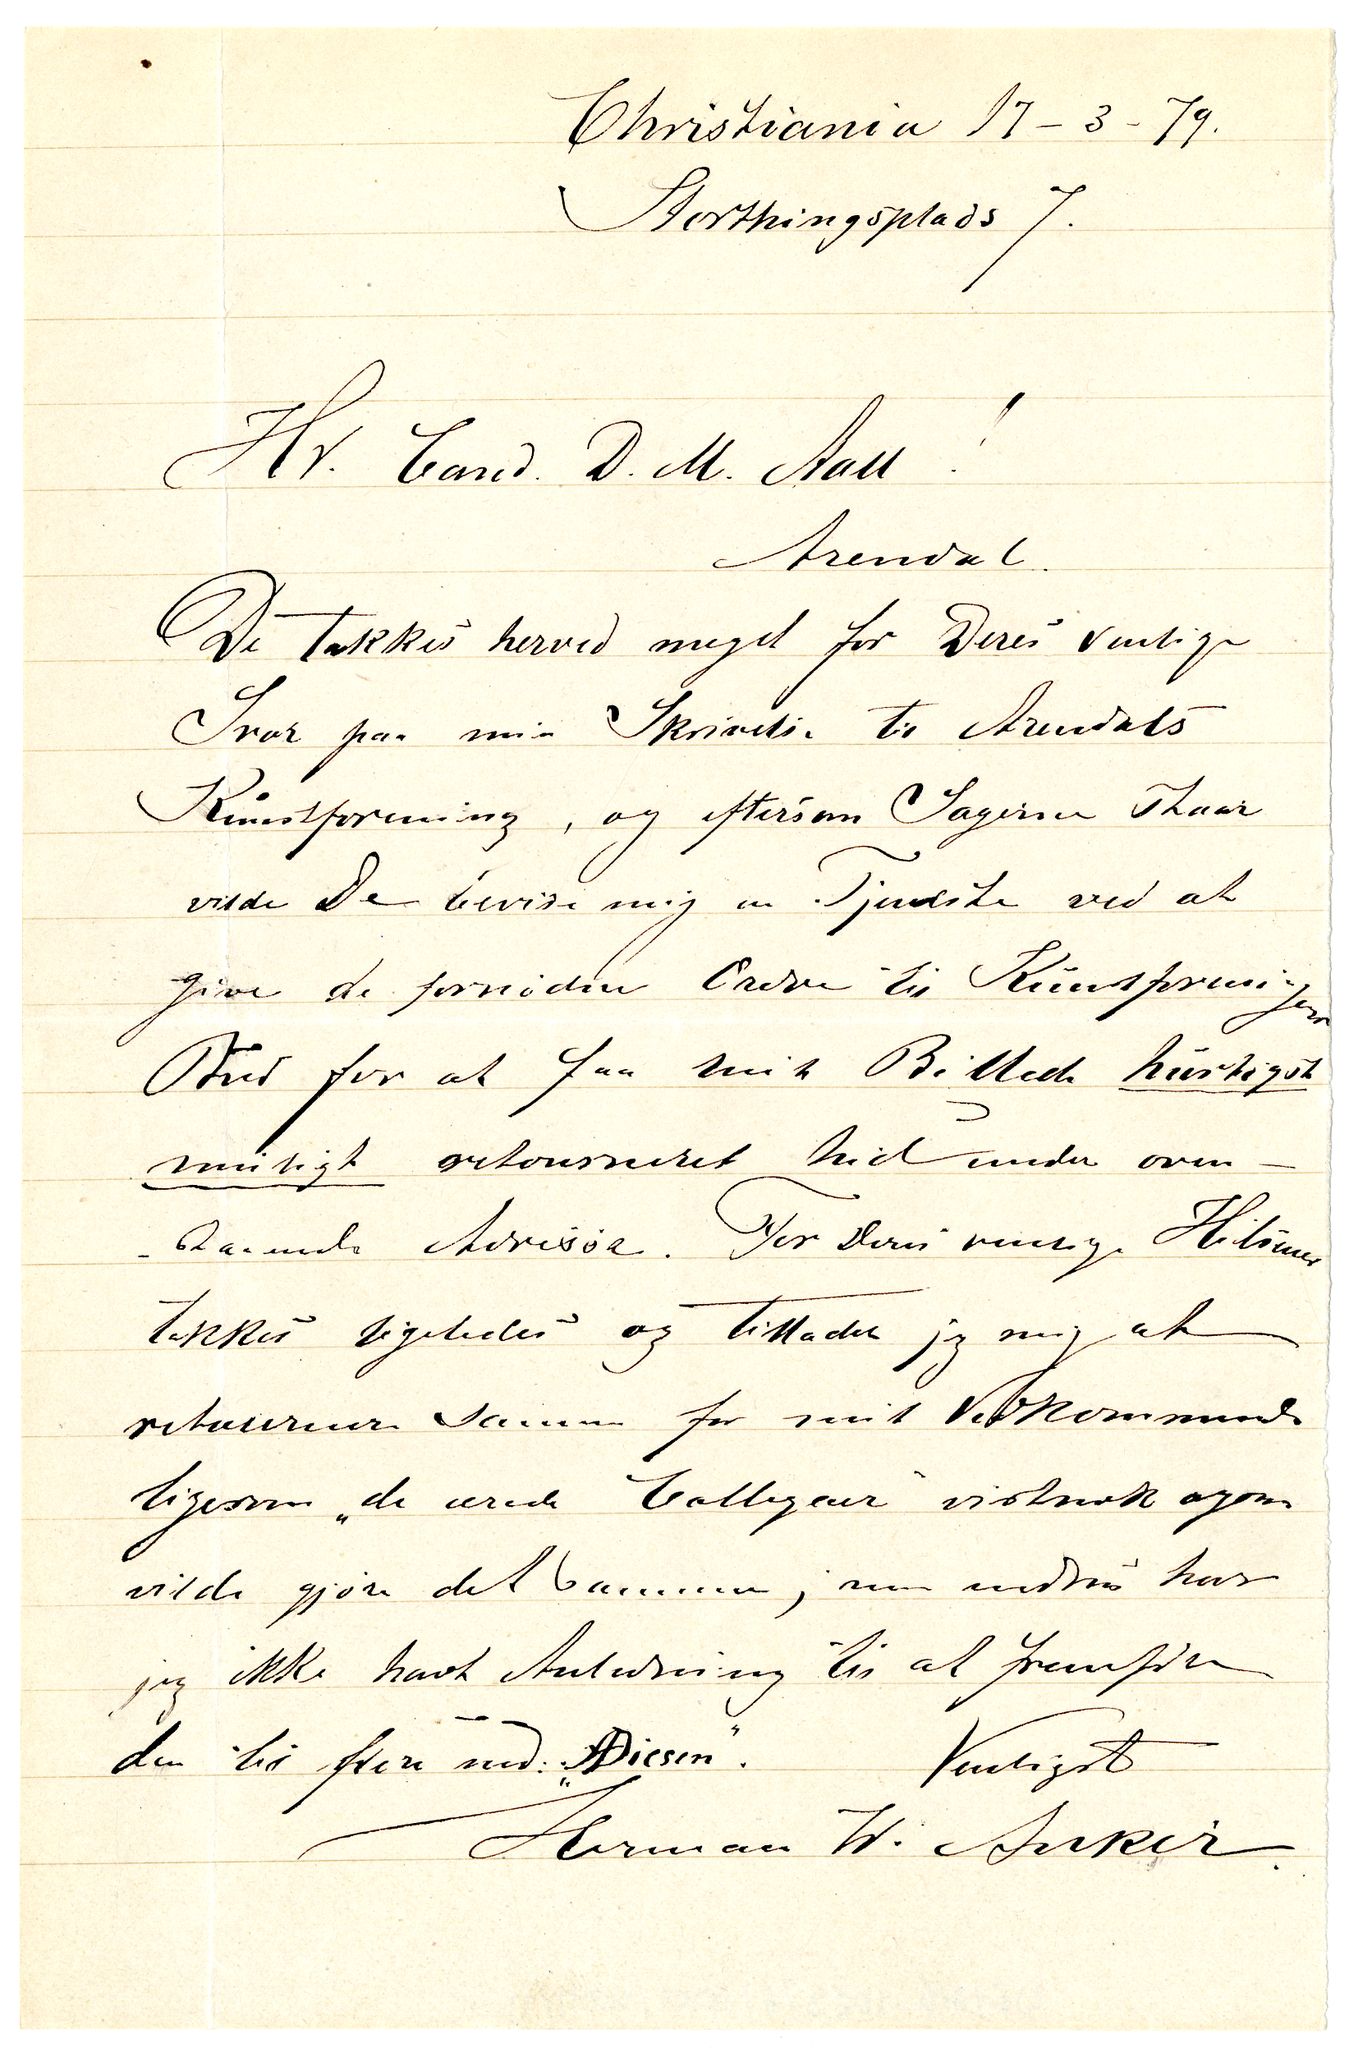 Christiania 17-3-79.
Storthingsplads 7.
Hr. Cand. D. M. Aall!
Arendal.
De takkes herved meget for Deres venlige
Svar paa min Skrivelse til Arendals
Kunstforening, og eftersom Sagerne staar
vilde De bevise mig en Tjeneste ved at
give de fornødne Ordre til Kunstforeningens
Bud for at faa mit Billede hurtigst
muligt retourneret hid under oven-
-staaende Adresse. For Deres venlige Hilsener
takkes ligeledes og tillader jeg mig at
retournere samme for mit Vedkommende
ligesom „de ærede Collegaer" vistnok ogsaa
vilde gjøre det samme; men endnu har
jeg ikke havt Anledning til at fremføre
den til flere end: „Diesen".
Venligst
Herman W. Anker.